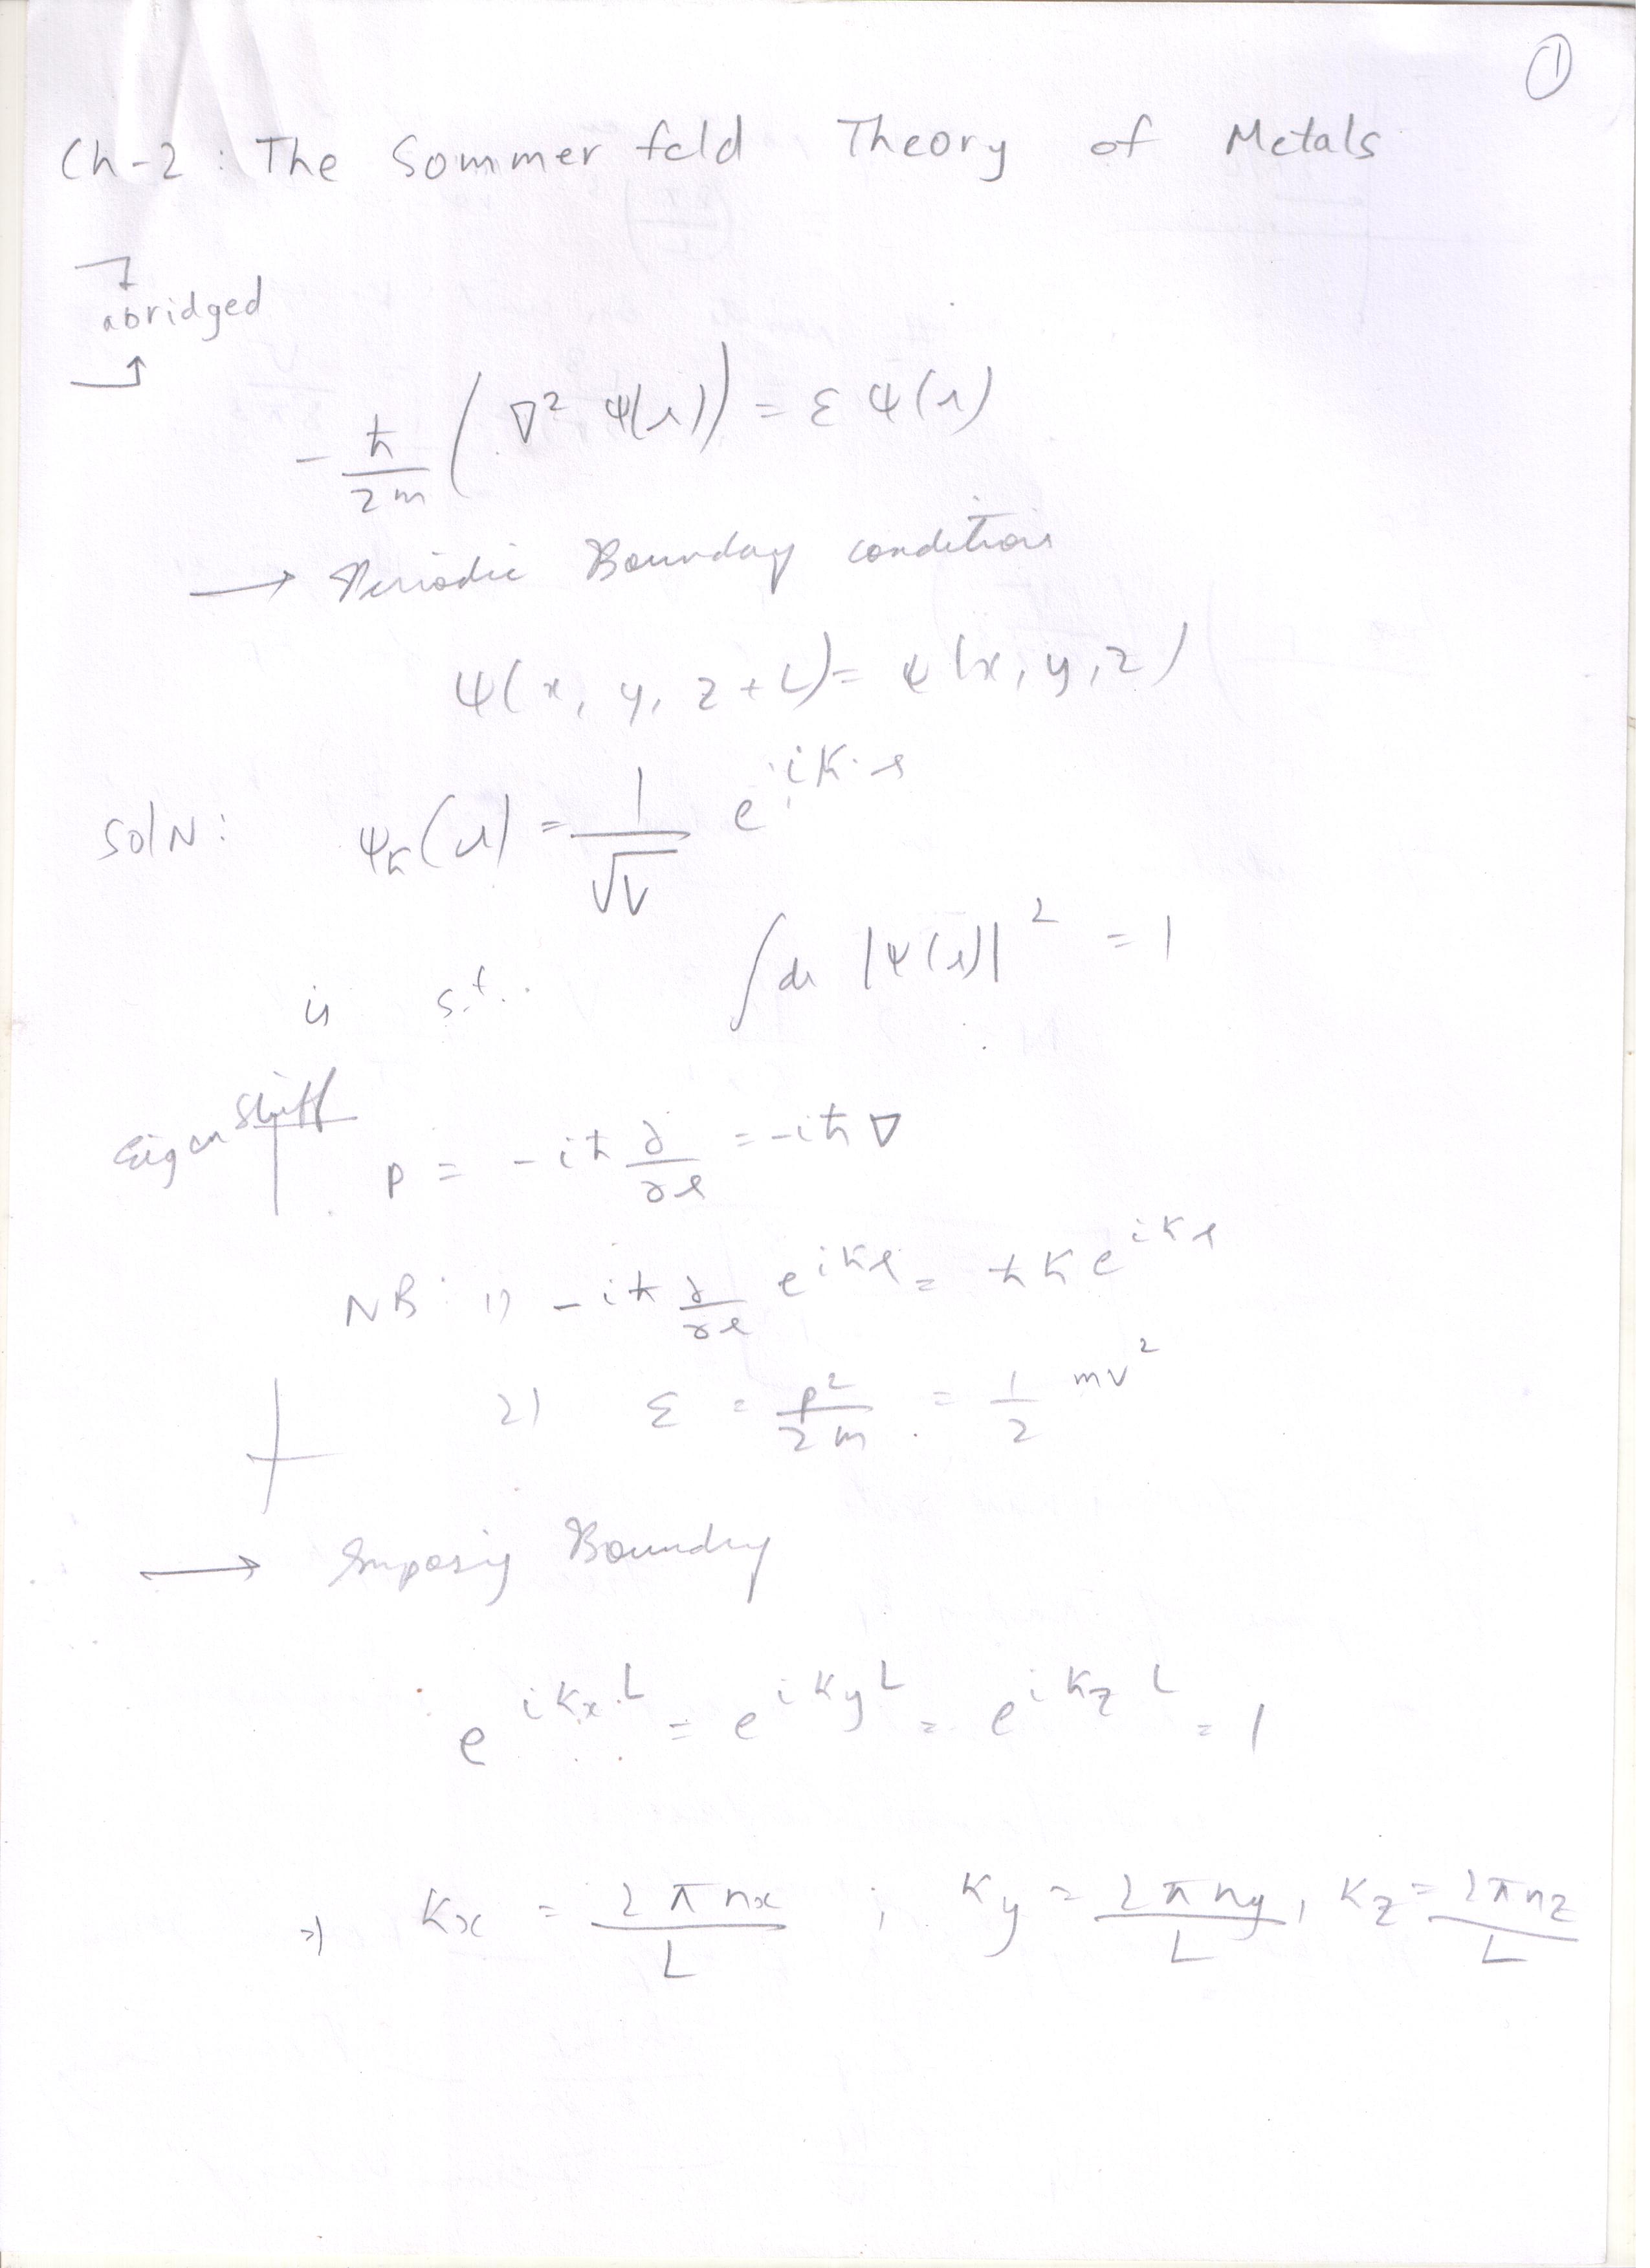 ①
Ch-2: The Sommerfeld Theory of Metals
abridged
- ħ/2m (∇² ψ(r)) = ε ψ(r)
→ Periodic Boundary condition
ψ(x, y, z+L) = ψ(x, y, z)
SolN: ψk(r) = 1/√V e^{ik·r}
is s.t. ∫dr |ψ(r)|² = 1
Eigen Stuff
p = -iħ ∂/∂r = -iħ∇
NB: 1) -iħ ∂/∂r e^{ikr} = ħk e^{ikr}
2) ε = p²/2m = 1/2 mv²
→ Imposing Boundry
e^{ikxL} = e^{ikyL} = e^{ikzL} = 1
⇒ kx = 2πnx/L ; ky = 2πny/L, kz = 2πnz/L